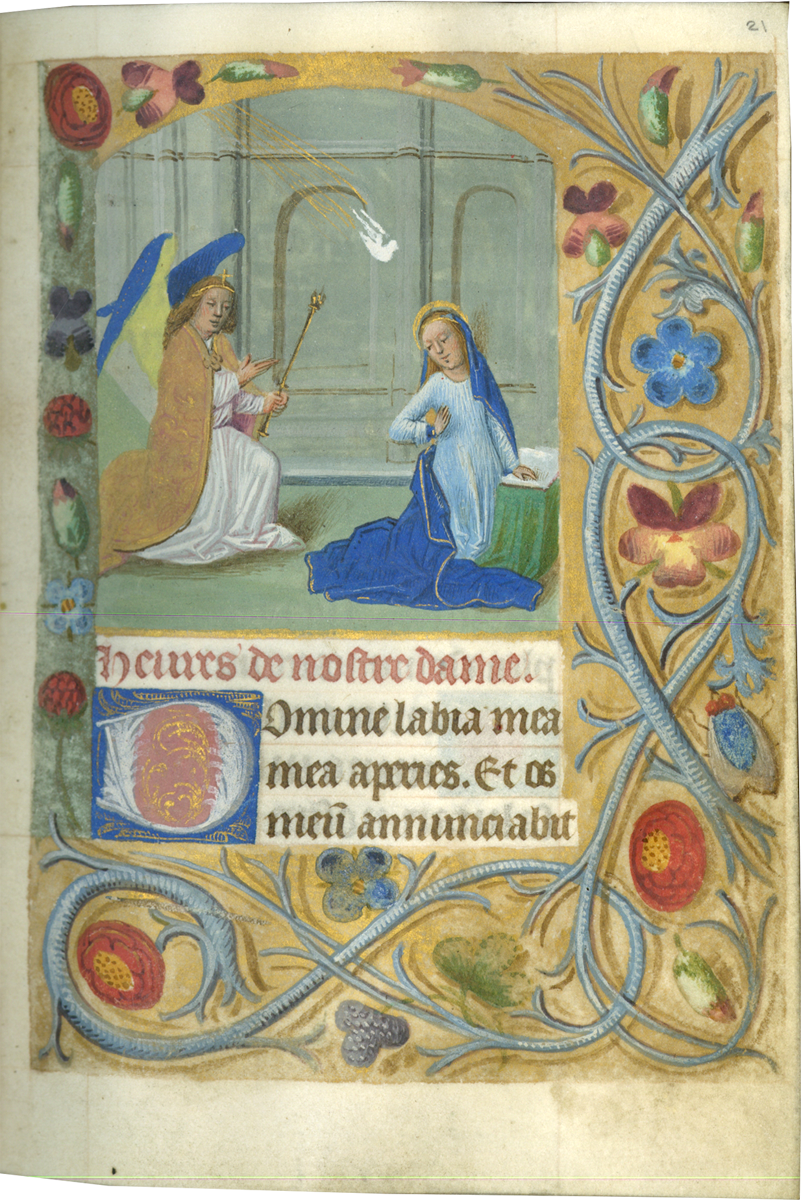 21
heures de nostre dame.
Domine labia mea
mea aperies. Et os
meū annunciabit